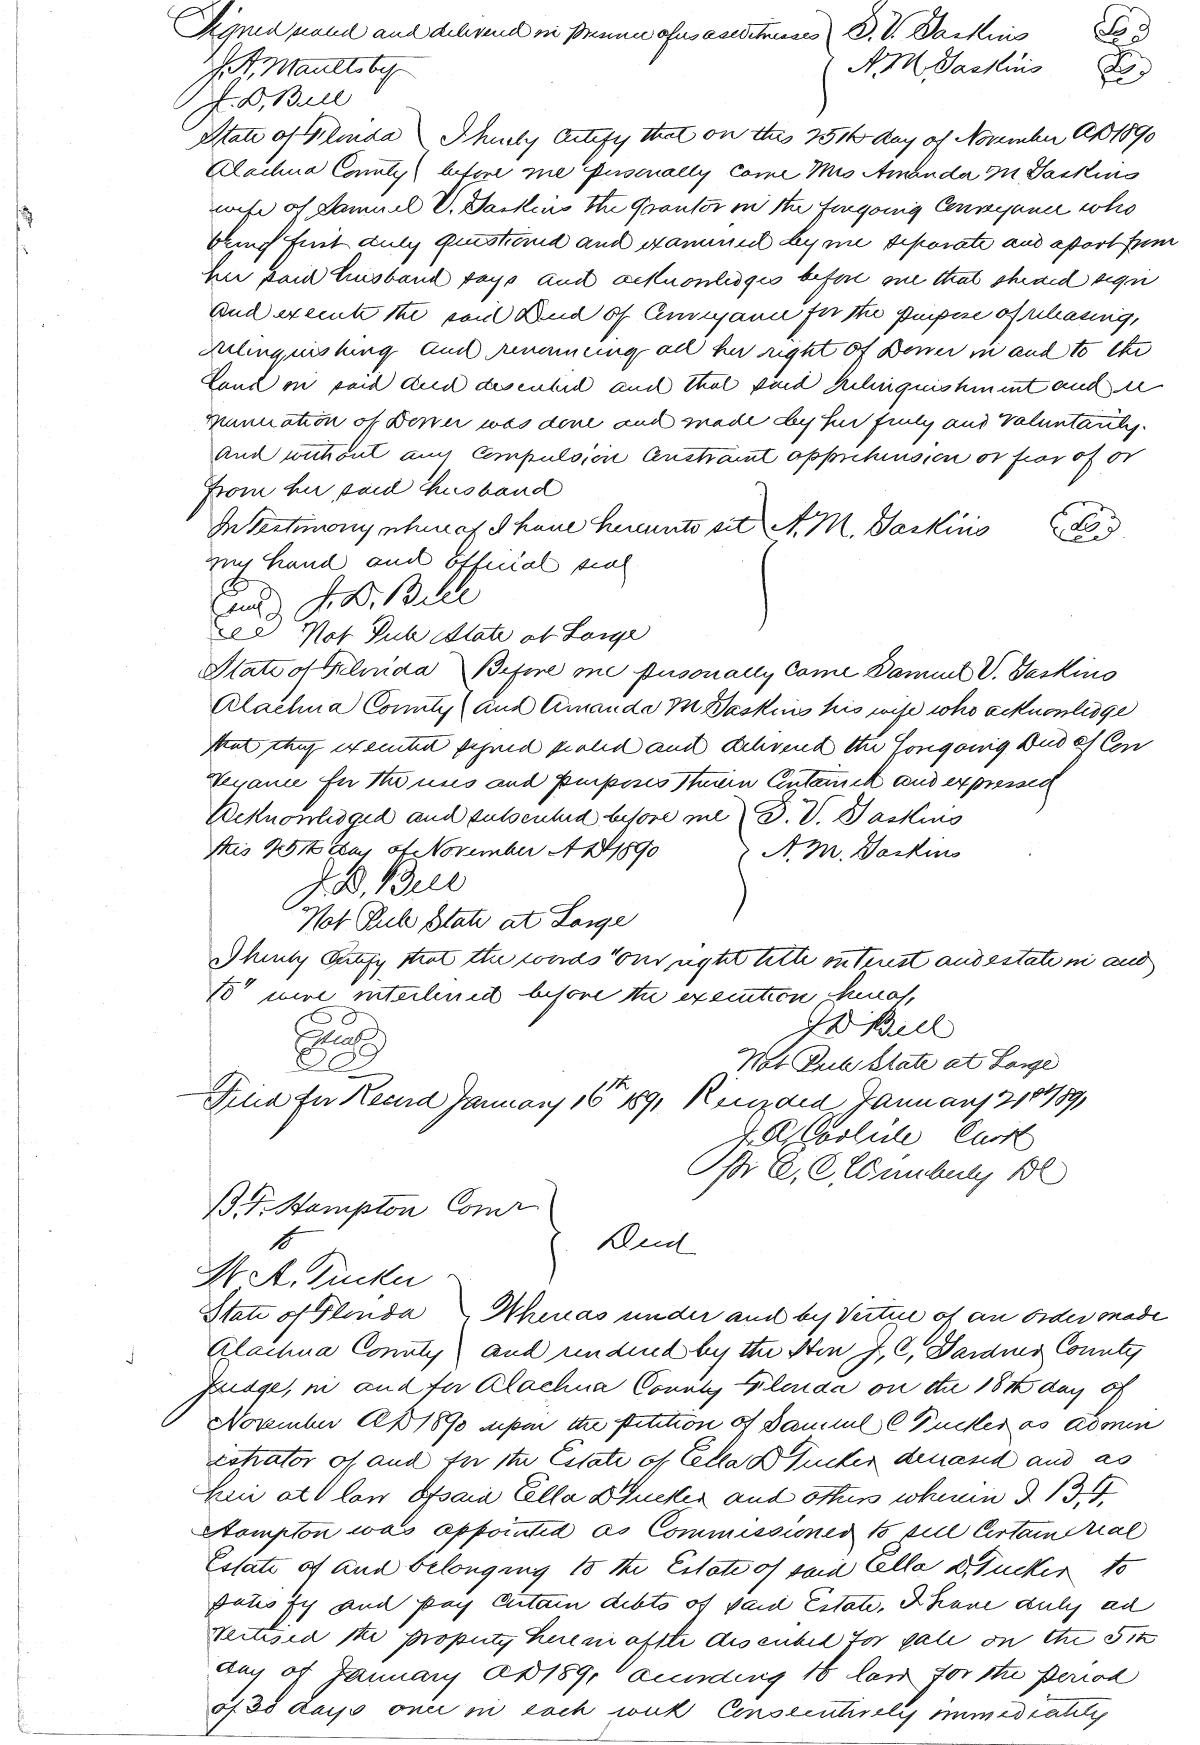 Signed sealed and delivered in presence of us as witnesses } S. V. Gaskins LS
J. A. Maultsby } A. M. Gaskins LS
J. D. Bell
State of Florida } I hereby certify that on this 25th day of November AD 1890
Alachua County } before me personally came Mrs Amanda M Gaskins
wife of Samuel V. Gaskins the grantor in the foregoing Conveyance who
being first duly questioned and examined by me separate and apart from
her said husband says and acknowledges before me that she did sign
and execute the said Deed of Conveyance for the purpose of releasing,
relinquishing and renouncing all her right of Dower in and to the
land in said deed described and that said relinquishment and re
nunciation of Dower was done and made by her freely and voluntarily.
and without any compulsion constraint apprehension or fear of or
from her said husband
In Testimony whereof I have hereunto set } A. M. Gaskins LS
my hand and official seal
Seal J. D. Bell
Not Pub State at Large
State of Florida } Before me personally came Samuel V. Gaskins
Alachua County } and Amanda M Gaskins his wife who acknowledge
that they executed signed sealed and delivered the foregoing Deed of Con
veyance for the uses and purposes therein Contained and expressed
Acknowledged and subscribed before me } S. V. Gaskins
this 25th day of November AD 1890 } A. M. Gaskins
J. D. Bell
Not Pub State at Large
I hereby Certify that the words "our right title interest and estate in and
to" were interlined before the execution hereof,
Seal J D Bell
Not Pub State at Large
Filed for Record January 16th 1891 Recorded January 21st 1891
J. A. Carlisle Clerk
Pr E. C. Wimberly DC
B. F. Hampton Comr
to } Deed
W. A. Tucker
State of Florida } Whereas under and by Virtue of an order made
Alachua County } and rendered by the Hon J, C, Gardner County
Judge, in and for Alachua County Florida on the 18th day of
November AD 1890 upon the petition of Samuel C Tucker as admin
istrator of and for the Estate of Ella D Tucker deceased and as
heir at law of said Ella D Tucker and others wherein I B, F,
Hampton was appointed as Commissioner to sell Certain real
Estate of and belonging to the Estate of said Ella D. Tucker to
satisfy and pay certain debts of said Estate. I have duly ad
vertised the property herein after described for sale on the 5th
day of January AD 1891 according to law for the period
of 30 days once in each week Consecutively immediately